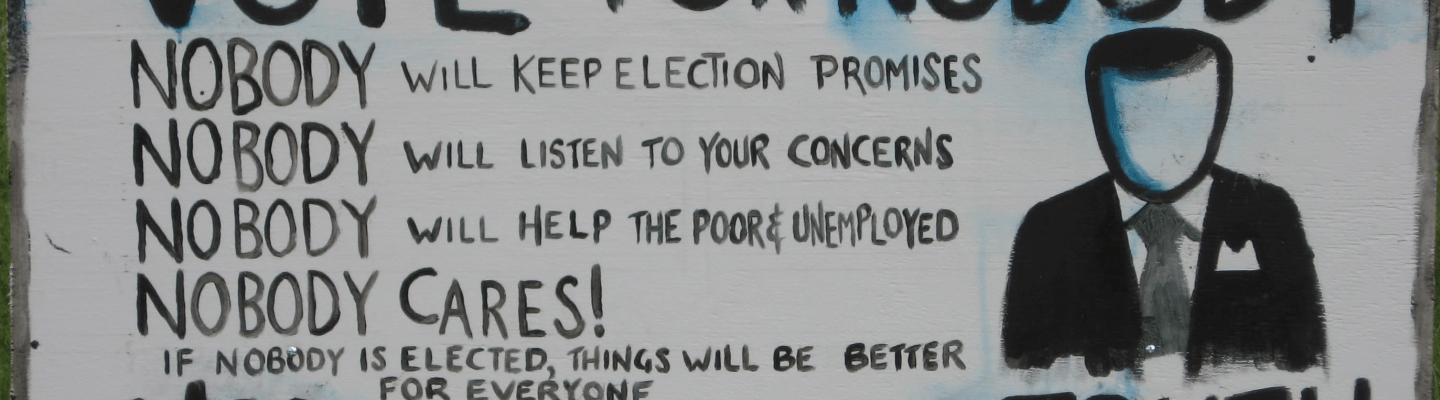 VOTE FOR NOBODY
NOBODY WILL KEEP ELECTION PROMISES
NOBODY WILL LISTEN TO YOUR CONCERNS
NOBODY WILL HELP THE POOR & UNEMPLOYED
NOBODY CARES!
IF NOBODY IS ELECTED, THINGS WILL BE BETTER
FOR EVERYONE